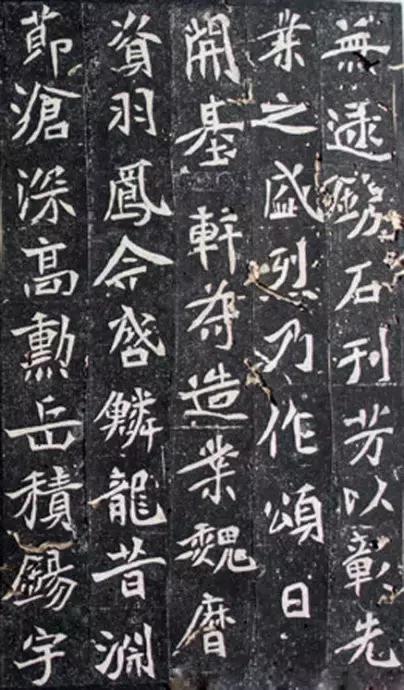 無逮鎸石刊芳以彰先
業之盛烈乃作頌曰
開基軒苻造業魏曆
資羽鳳今啓鱗龍昔淵
節滄深高勳岳積錫宇